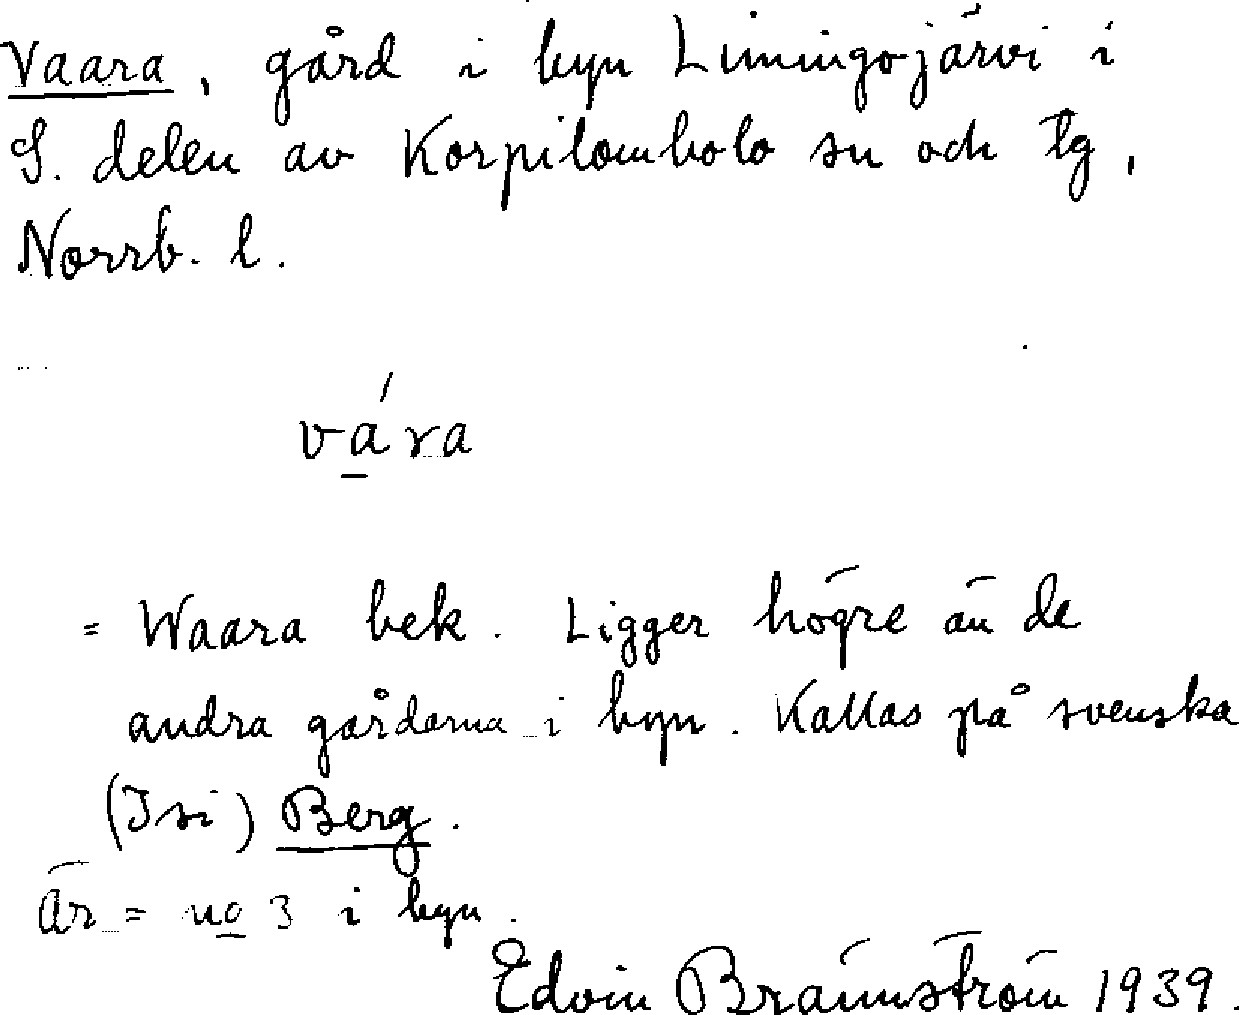 Vaara, gård i byn Limingojärvi i
S. delen av Korpilombolo sn och tg,
Norrb. l.
vá̱ra
= Waara bek. Ligger högre än de
andra gårdarna i byn. Kallas på svenska
(Isi) Berg.
Är = no 3 i byn.
Edvin Brännström 1939.